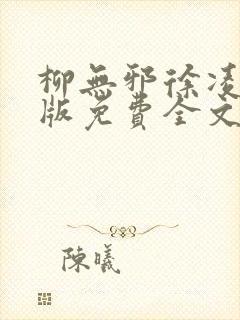 柳無邪徐凌
版免費全文
陳曦